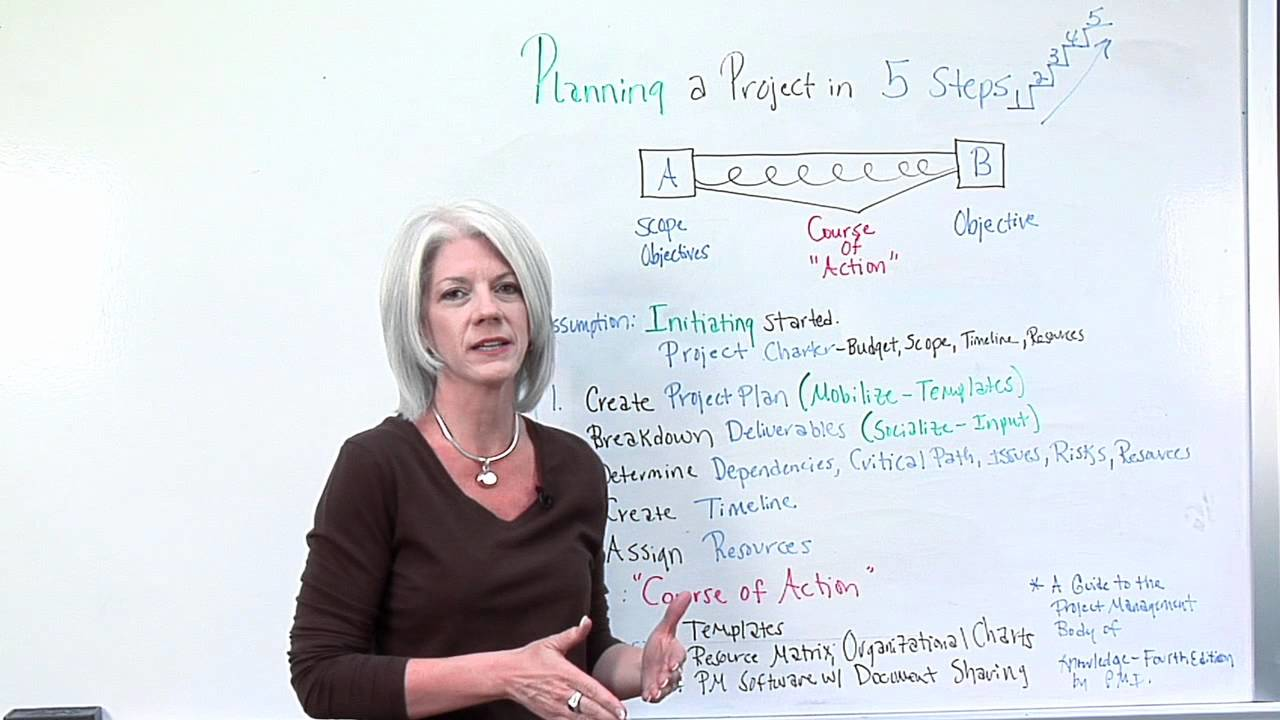 Planning a Project in 5 Steps
1 2 3 4 5
A B
Scope Objectives
Course of "Action"
Objective
ssumption: Initiating started.
Project Charter - Budget, Scope, Timeline, Resources
1. Create Project Plan (Mobilize - Templates)
Breakdown Deliverables (Socialize - Input)
Determine Dependencies, Critical Path, Issues, Risks, Resources
Create Timeline.
Assign Resources
: "Course of Action"
Templates
Resource Matrix, Organizational Charts
PM Software w/ Document Sharing
* A Guide to the
Project Management
Body of
Knowledge - Fourth Edition
by P.M.I.